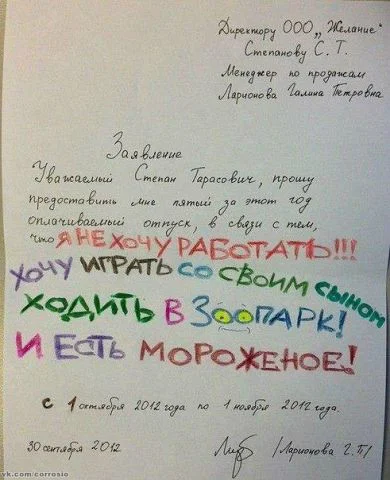 Директору ООО „Желание"
Степанову С. Т.
Менеджер по продажам
Ларионова Галина Петровна
Заявление
Уважаемый Степан Тарасович, прошу
предоставить мне пятый за этот год
оплачиваемый отпуск, в связи с тем,
что Я НЕ ХОЧУ РАБОТАТЬ!!!
ХОЧУ ИГРАТЬ СО СВОИМ СЫНОМ
ХОДИТЬ В ЗООПАРК!
И ЕСТЬ МОРОЖЕНОЕ!
с 1 октября 2012 года по 1 ноября 2012 года.
30 сентября 2012 /Ларионова Г. П/
vk.com/corrosio